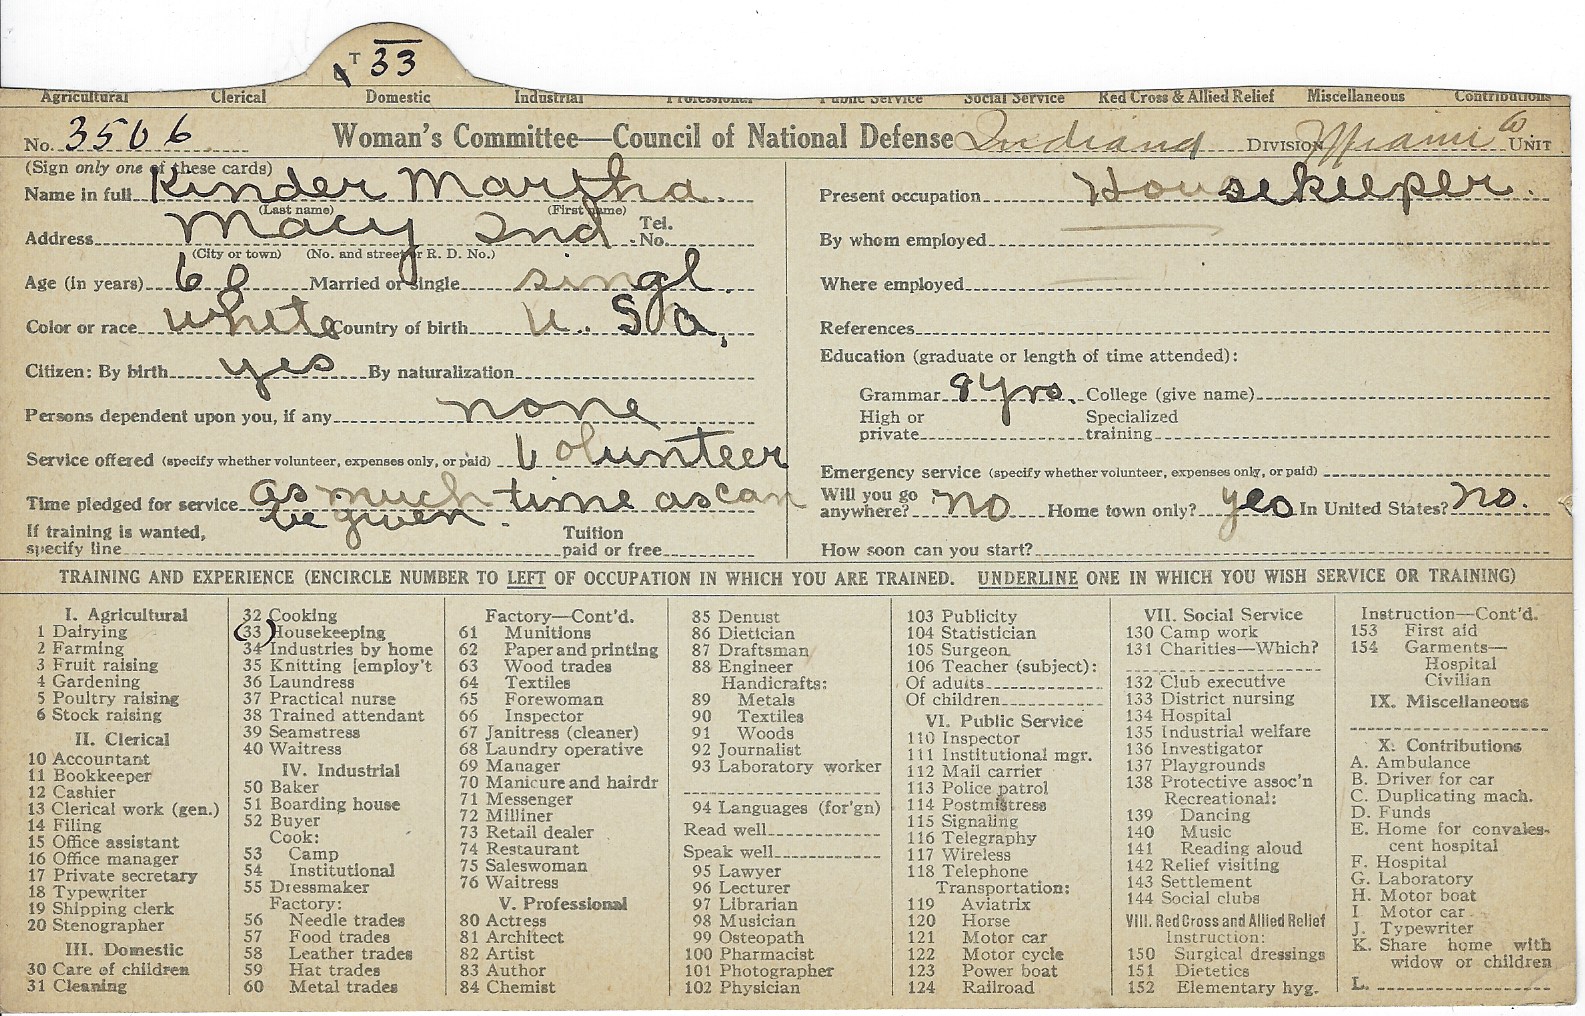 T 33
Agricultural Clerical Domestic Industrial Professional Public Service Social Service Red Cross & Allied Relief Miscellaneous Contributions
No. 3506 Woman's Committee—Council of National Defense Indiana DIVISION Miami Co UNIT
(Sign only one of these cards)
Name in full Kinder Martha.
(Last name) (First name)
Address Macy Ind. Tel. No.
(City or town) (No. and street or R. D. No.)
Age (in years) 60 Married or single singl.
Color or race white Country of birth U. S a,
Citizen: By birth yes By naturalization
Persons dependent upon you, if any none
Service offered (specify whether volunteer, expenses only, or paid) Volunteer
Time pledged for service as much time as can
be given.
If training is wanted, specify line Tuition paid or free
Present occupation Housekeeper.
By whom employed
Where employed
References
Education (graduate or length of time attended):
Grammar 8 yrs. College (give name)
High or private Specialized training
Emergency service (specify whether volunteer, expenses only, or paid)
Will you go anywhere? no Home town only? yes In United States? no.
How soon can you start?
TRAINING AND EXPERIENCE (ENCIRCLE NUMBER TO LEFT OF OCCUPATION IN WHICH YOU ARE TRAINED. UNDERLINE ONE IN WHICH YOU WISH SERVICE OR TRAINING)
I. Agricultural
1 Dairying
2 Farming
3 Fruit raising
4 Gardening
5 Poultry raising
6 Stock raising
II. Clerical
10 Accountant
11 Bookkeeper
12 Cashier
13 Clerical work (gen.)
14 Filing
15 Office assistant
16 Office manager
17 Private secretary
18 Typewriter
19 Shipping clerk
20 Stenographer
III. Domestic
30 Care of children
31 Cleaning
32 Cooking
(33) Housekeeping
34 Industries by home
35 Knitting [employ't
36 Laundress
37 Practical nurse
38 Trained attendant
39 Seamstress
40 Waitress
IV. Industrial
50 Baker
51 Boarding house
52 Buyer
Cook:
53 Camp
54 Institutional
55 Dressmaker
Factory:
56 Needle trades
57 Food trades
58 Leather trades
59 Hat trades
60 Metal trades
Factory—Cont'd.
61 Munitions
62 Paper and printing
63 Wood trades
64 Textiles
65 Forewoman
66 Inspector
67 Janitress (cleaner)
68 Laundry operative
69 Manager
70 Manicure and hairdr
71 Messenger
72 Milliner
73 Retail dealer
74 Restaurant
75 Saleswoman
76 Waitress
V. Professional
80 Actress
81 Architect
82 Artist
83 Author
84 Chemist
85 Dentist
86 Dietician
87 Draftsman
88 Engineer
Handicrafts:
89 Metals
90 Textiles
91 Woods
92 Journalist
93 Laboratory worker
94 Languages (for'gn)
Read well
Speak well
95 Lawyer
96 Lecturer
97 Librarian
98 Musician
99 Osteopath
100 Pharmacist
101 Photographer
102 Physician
103 Publicity
104 Statistician
105 Surgeon
106 Teacher (subject):
Of adults
Of children
VI. Public Service
110 Inspector
111 Institutional mgr.
112 Mail carrier
113 Police patrol
114 Postmistress
115 Signaling
116 Telegraphy
117 Wireless
118 Telephone
Transportation:
119 Aviatrix
120 Horse
121 Motor car
122 Motor cycle
123 Power boat
124 Railroad
VII. Social Service
130 Camp work
131 Charities—Which?
132 Club executive
133 District nursing
134 Hospital
135 Industrial welfare
136 Investigator
137 Playgrounds
138 Protective assoc'n
Recreational:
139 Dancing
140 Music
141 Reading aloud
142 Relief visiting
143 Settlement
144 Social clubs
VIII. Red Cross and Allied Relief
Instruction:
150 Surgical dressings
151 Dietetics
152 Elementary hyg.
Instruction—Cont'd.
153 First aid
154 Garments—
Hospital
Civilian
IX. Miscellaneous
X. Contributions
A. Ambulance
B. Driver for car
C. Duplicating mach.
D. Funds
E. Home for convales-
cent hospital
F. Hospital
G. Laboratory
H. Motor boat
I Motor car
J. Typewriter
K. Share home with
widow or children
L.